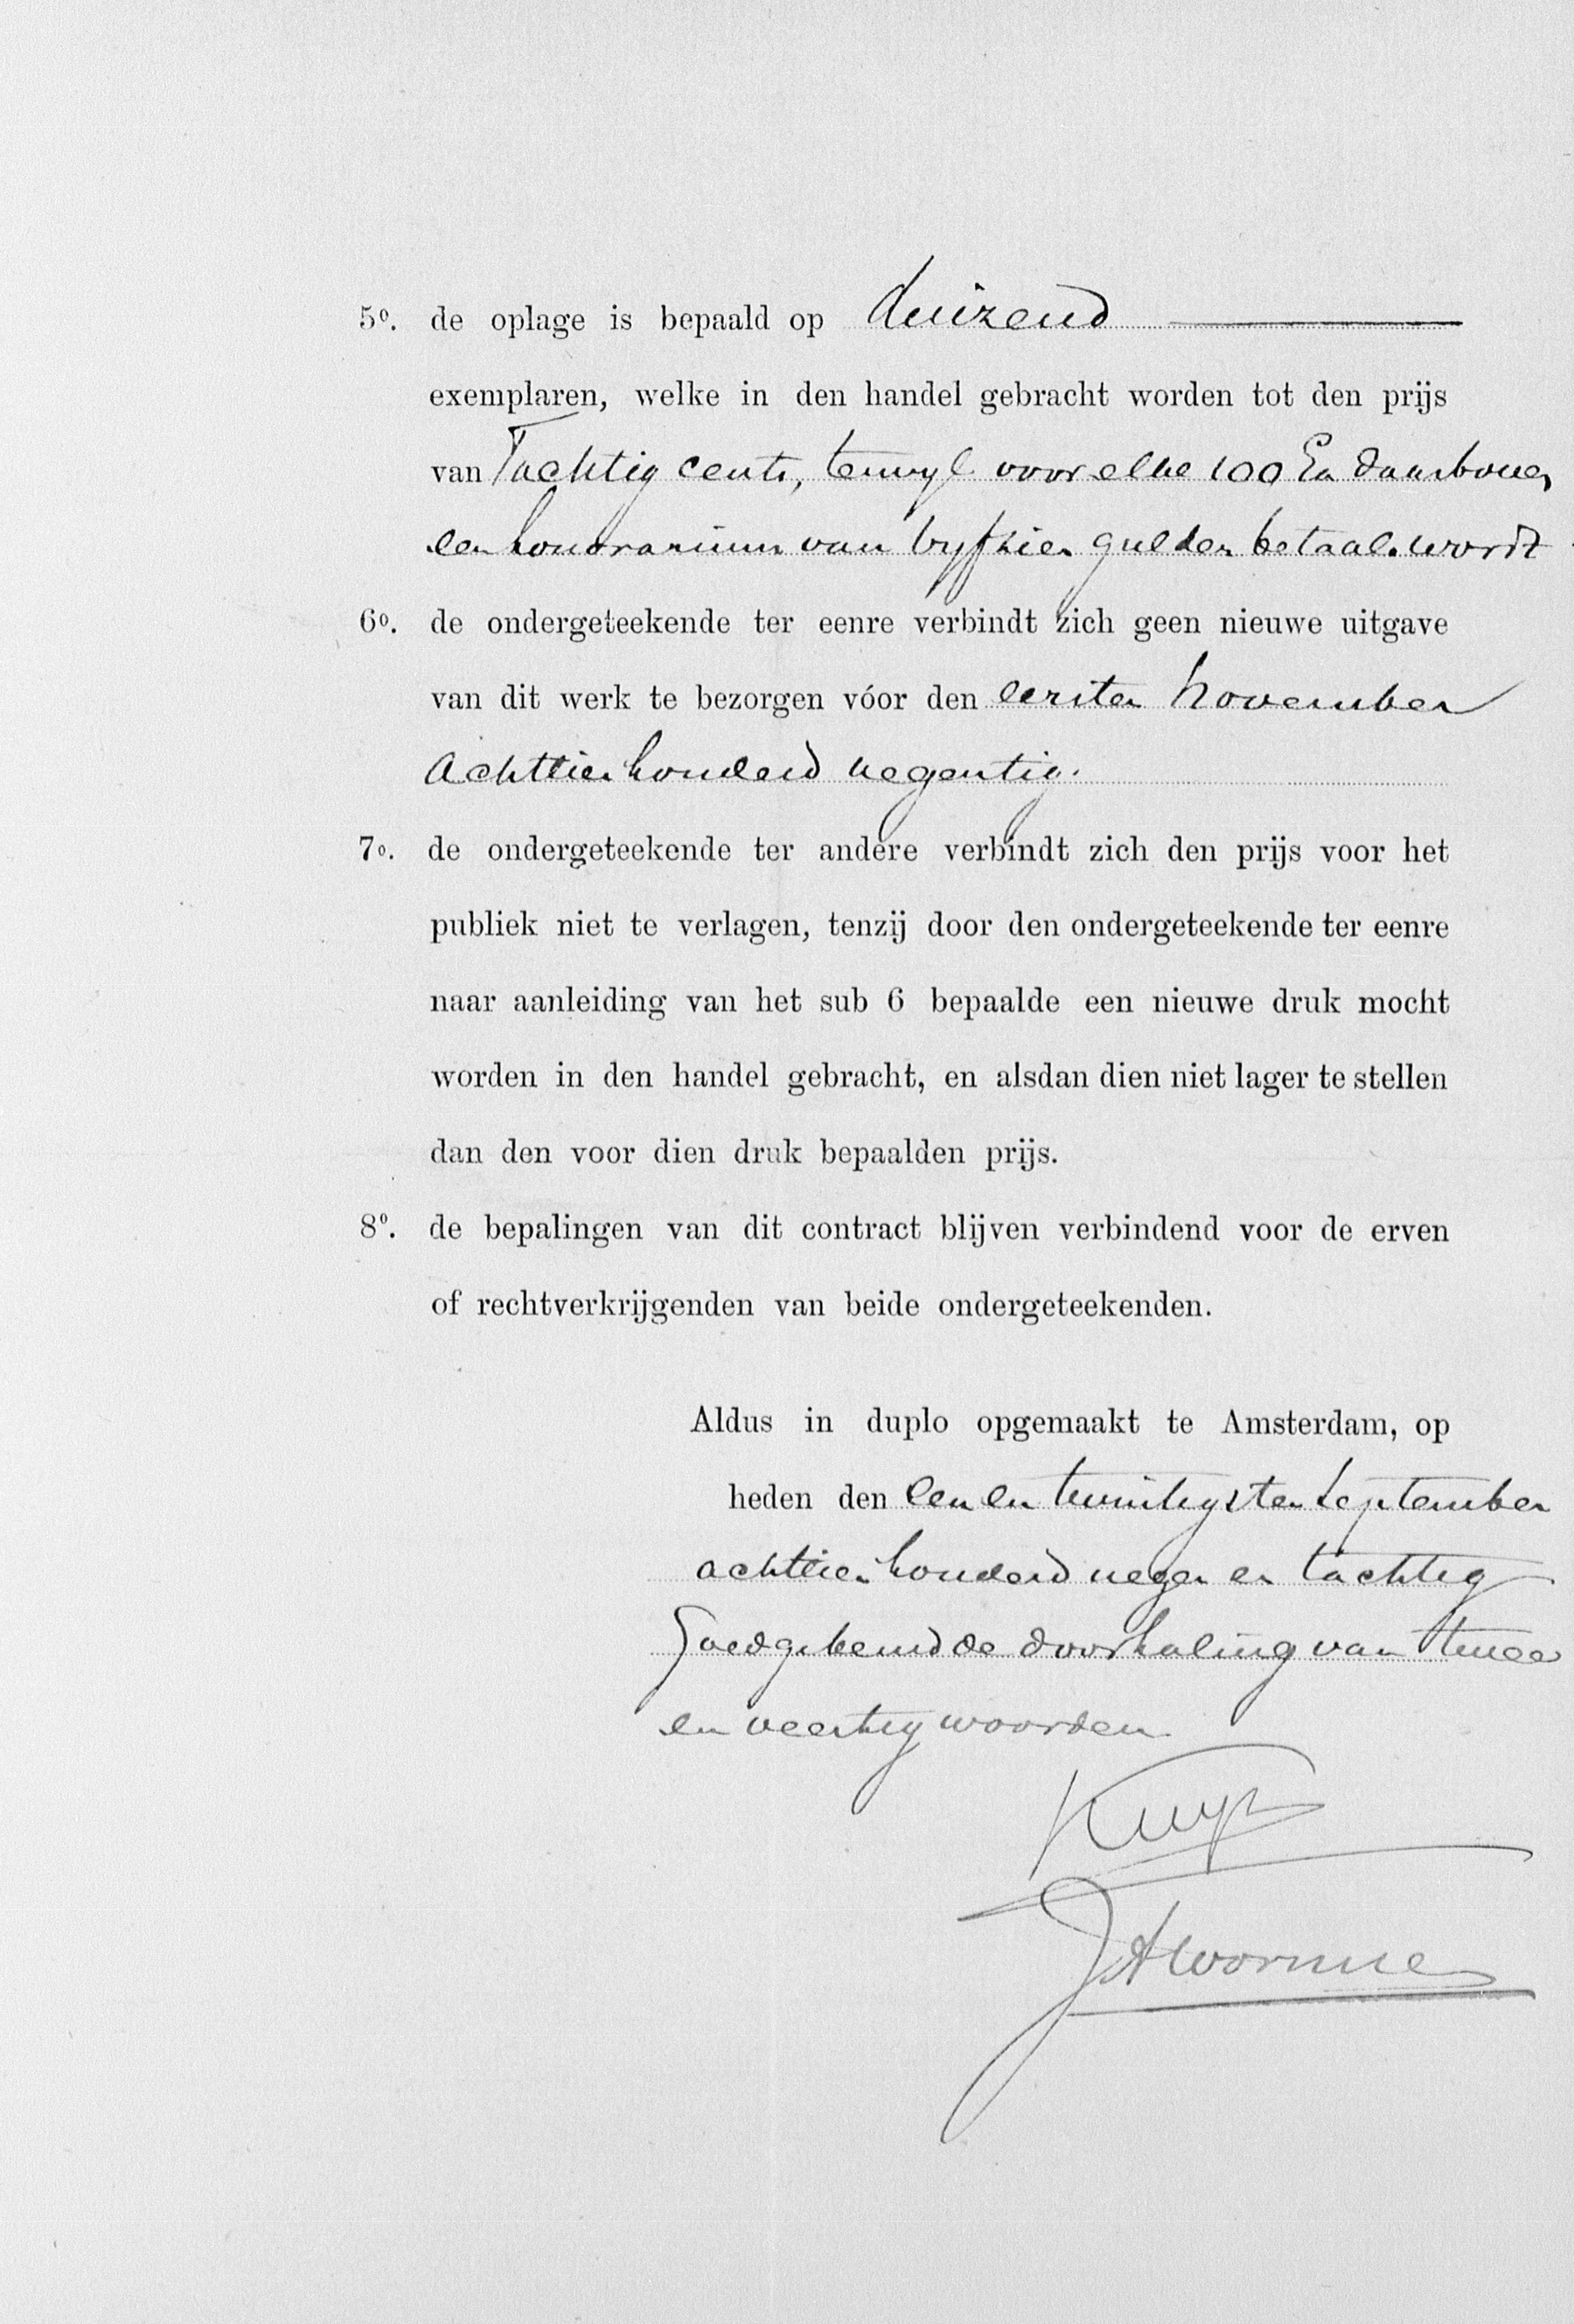 5º. de oplage is bepaald op duizend
exemplaren, welke in den handel gebracht worden tot den prijs
van Tachtig cents, terwyl voor elke 100 Ex daarboven
een honorarium van vyftien gulden betaald wordt
6º. de ondergeteekende ter eenre verbindt zich geen nieuwe uitgave
van dit werk te bezorgen vóor den eersten November
achttienhonderd negentig.
7º. de ondergeteekende ter andere verbindt zich den prijs voor het
publiek niet te verlagen, tenzij door den ondergeteekende ter eenre
naar aanleiding van het sub 6 bepaalde een nieuwe druk mocht
worden in den handel gebracht, en alsdan dien niet lager te stellen
dan den voor dien druk bepaalden prijs.
8º. de bepalingen van dit contract blijven verbindend voor de erven
of rechtverkrijgenden van beide ondergeteekenden.
Aldus in duplo opgemaakt te Amsterdam, op
heden den een en twintigsten September
achttienhonderd negen en tachtig
Goedgekeurd de doorhaling van twee
en veertig woorden
Kuyper
JAWormser